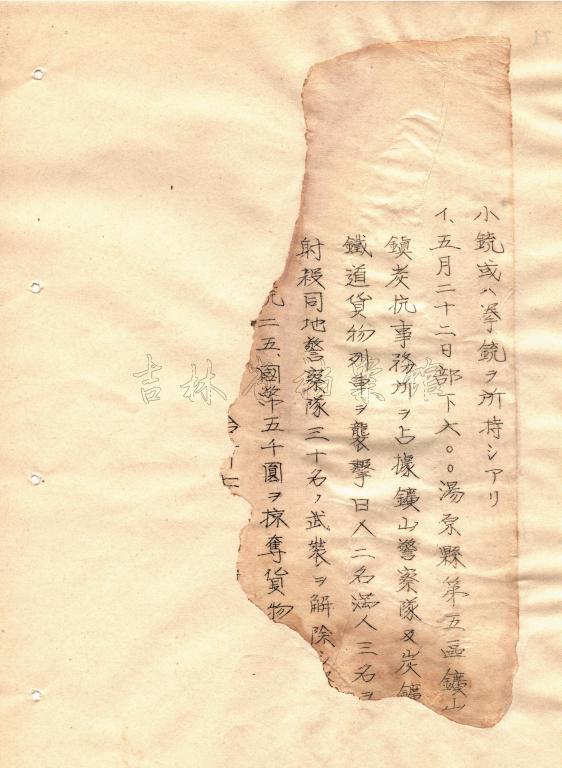 小銃或ハ拳銃ヲ所持シアリ
イ、五月二十二日部下六〇〇湯原縣第五區鑛山
鎮炭坑事務所ヲ占據鑛山警察隊及炭鑛
鐵道貨物列車ヲ襲撃日人二名滿人三名ヲ
射殺同地警察隊三十名ノ武裝ヲ解除シ
銃二五、國幣五千圓ヲ掠奪貨物
吉林省档案馆